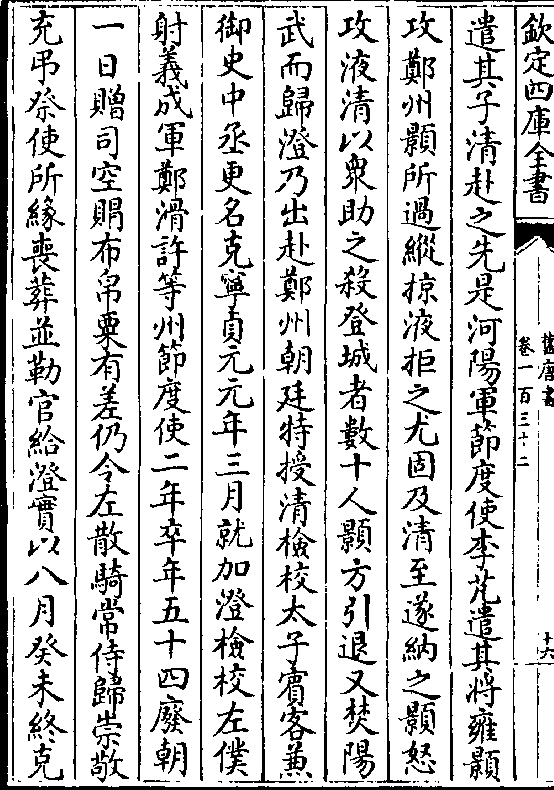 欽定四庫全書
舊唐書
卷一百三十二
十六
遣其子清赴之先是河陽軍節度使李芃遣其將雍顥
攻鄭州顥所過縱掠液拒之尤固及清至遂納之顥怒
攻液清以衆助之殺登城者數十人顥方引退又焚陽
武而歸澄乃出赴鄭州朝廷特授清檢校太子賓客兼
御史中丞更名克寧貞元元年三月就加澄檢校左僕
射義成軍鄭滑許等州節度使二年卒年五十四廢朝
一日贈司空賻布帛粟有差仍令左散騎常侍歸崇敬
充弔祭使所緣喪葬並勒官給澄實以八月癸未終克